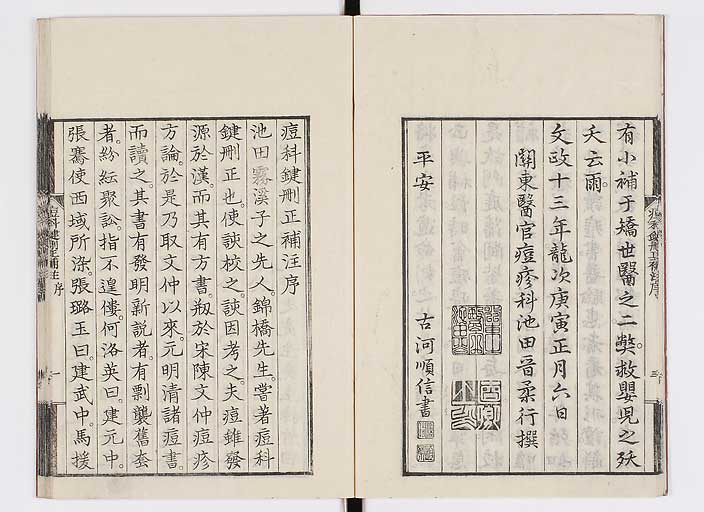 有小補于矯世醫之二獘救嬰兒之殀
夭云雨。
文政十三年龍次庚寅正月六日
關東醫官痘疹科池田晉柔行撰
平安 古河順信書
痘科鍵刪正補注序
池田霧溪子之先人。錦橋先生。嘗著痘科
鍵刪正也。使諛校之。諛因考之。夫痘雖發
源於漢。而其有方書。刱於宋陳文仲痘疹
方論。於是乃取文仲以來。元明清諸痘書。
而讀之。其書有發明新說者。有剽襲舊套
者。紛紜聚訟。指不遑僂。何洛英曰。建元中。
張騫使西域所染。張璐玉曰。建武中。馬援
痘科鍵刪正補注 序 一